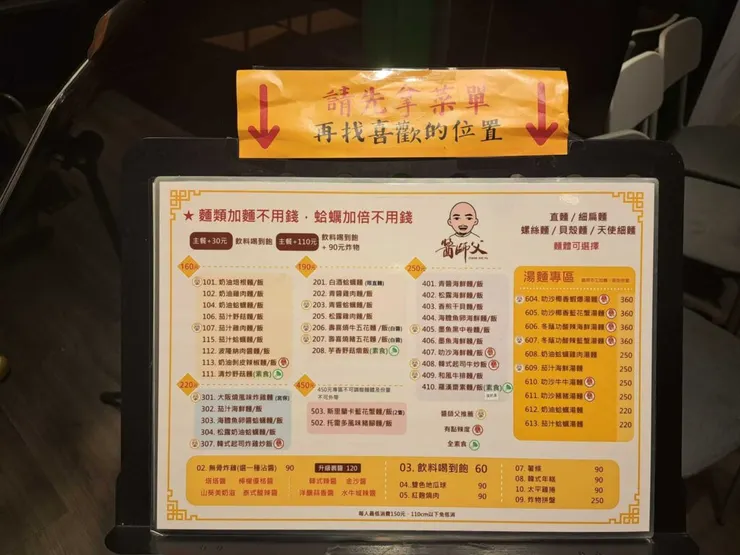 請先拿菜單
再找喜歡的位置
★ 麵類加麵不用錢．蛤蠣加倍不用錢
主餐+30元 飲料喝到飽 主餐+110元 飲料喝到飽
+ 90元炸物
醬師父
直麵 / 細扁麵
螺絲麵 / 貝殼麵 / 天使細麵
麵體可選擇
160元
101. 奶油培根麵/飯
102. 奶油雞肉麵/飯
104. 奶油蛤蠣麵/飯
106. 茄汁野菇麵/飯
107. 茄汁雞肉麵/飯
115. 茄汁蛤蠣麵/飯
112. 波隆納肉醬麵/飯
113. 奶油剝皮辣椒麵/飯
111. 清炒野菇麵(素食)
190元
201. 白酒蛤蠣麵(限直麵)
202. 青醬雞肉麵/飯
203. 青醬蛤蠣麵/飯
205. 松露雞肉麵/飯
206. 壽喜燒牛五花麵/飯(白醬)
207. 壽喜燒豬五花麵/飯(白醬)
208. 芋香野菇燉飯(素食)
250元
401. 青醬海鮮麵/飯
402. 松露海鮮麵/飯
403. 香煎干貝麵/飯
404. 海膽魚卵海鮮麵/飯
405. 墨魚黑中卷麵/飯
406. 墨魚海鮮麵/飯
407. 叻沙海鮮麵/飯
408. 韓式起司牛炒麵/飯
409. 和風牛排麵/飯
410. 羅漢齋素麵/飯(素食)
220元
301. 大阪燒風味炸雞麵
302. 茄汁海鮮麵/飯
303. 海膽魚卵醬蛤蠣麵/飯
304. 松露奶油蛤蠣麵/飯
307. 韓式起司炸雞炒飯
450元
450元專區不可調麵種及份量
不可外帶
503. 斯里蘭卡藍花蟹麵/飯(2隻)
502. 托雷多風味豬腳麵/飯
醬師父推薦
有點辣度
全素食
湯麵專區
604. 叻沙椰香蝦爆湯麵 360
605. 叻沙椰香藍花蟹湯麵 360
606. 冬蔭功酸辣海鮮湯麵 360
607. 冬蔭功酸辣藍蟹湯麵 360
608. 奶油蛤蠣雞肉湯麵 250
609. 茄汁海鮮湯麵 250
610. 叻沙牛牛湯麵 250
611. 叻沙豬豬湯麵 250
612. 奶油蛤蠣湯麵 250
613. 茄汁蛤蠣湯麵 250
02. 無骨炸雞(選一種沾醬) 90
塔塔醬 檸檬優格醬
山葵美奶滋 泰式酸辣醬
升級價醬 120
韓式辣醬 金沙醬
洋釀蒜香醬 水牛城辣醬
03. 飲料喝到飽 60
04. 雙色地瓜球 90
05. 紅麴燒肉 90
07. 薯條 90
08. 韓式年糕 90
10. 太平雞捲 90
09. 炸物拼盤 250
每人最低消費150元．110cm以下免低消